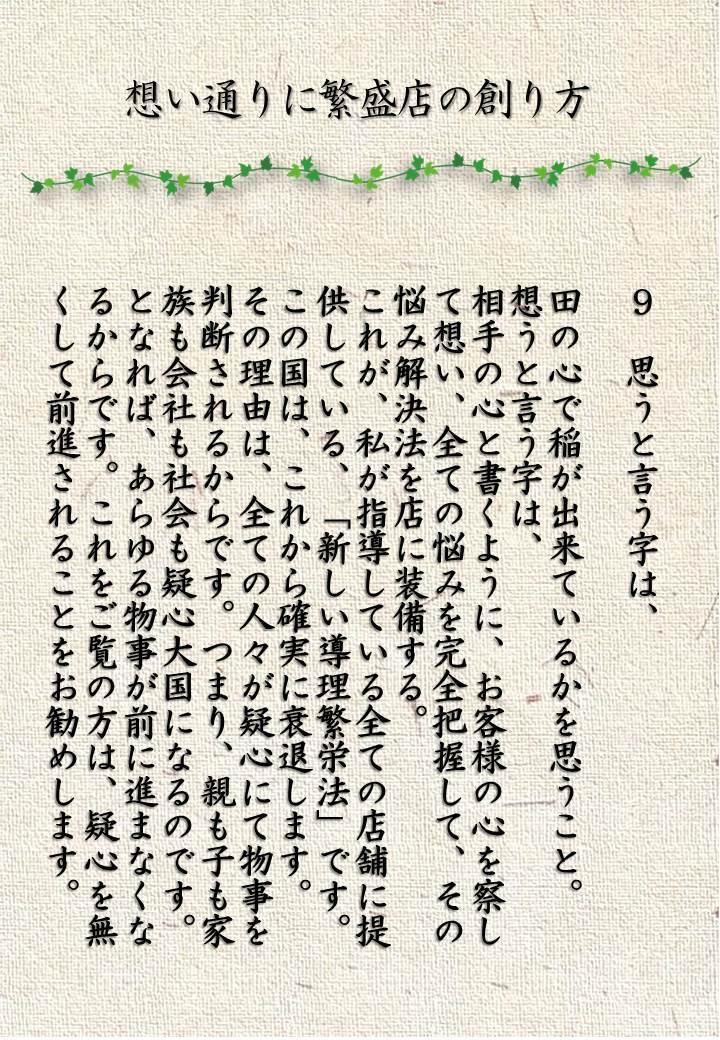 想い通りに繁盛店の創り方
9 思うと言う字は、
田の心で稲が出来ているかを思うこと。
想うと言う字は、
相手の心と書くように、お客様の心を察し
て想い、全ての悩みを完全把握して、その
悩み解決法を店に装備する。
これが、私が指導している全ての店舗に提
供している、「新しい導理繁栄法」です。
この国は、これから確実に衰退します。
その理由は、全ての人々が疑心にて物事を
判断されるからです。つまり、親も子も家
族も会社も社会も疑心大国になるのです。
となれば、あらゆる物事が前に進まなくな
るからです。これをご覧の方は、疑心を無
くして前進されることをお勧めします。